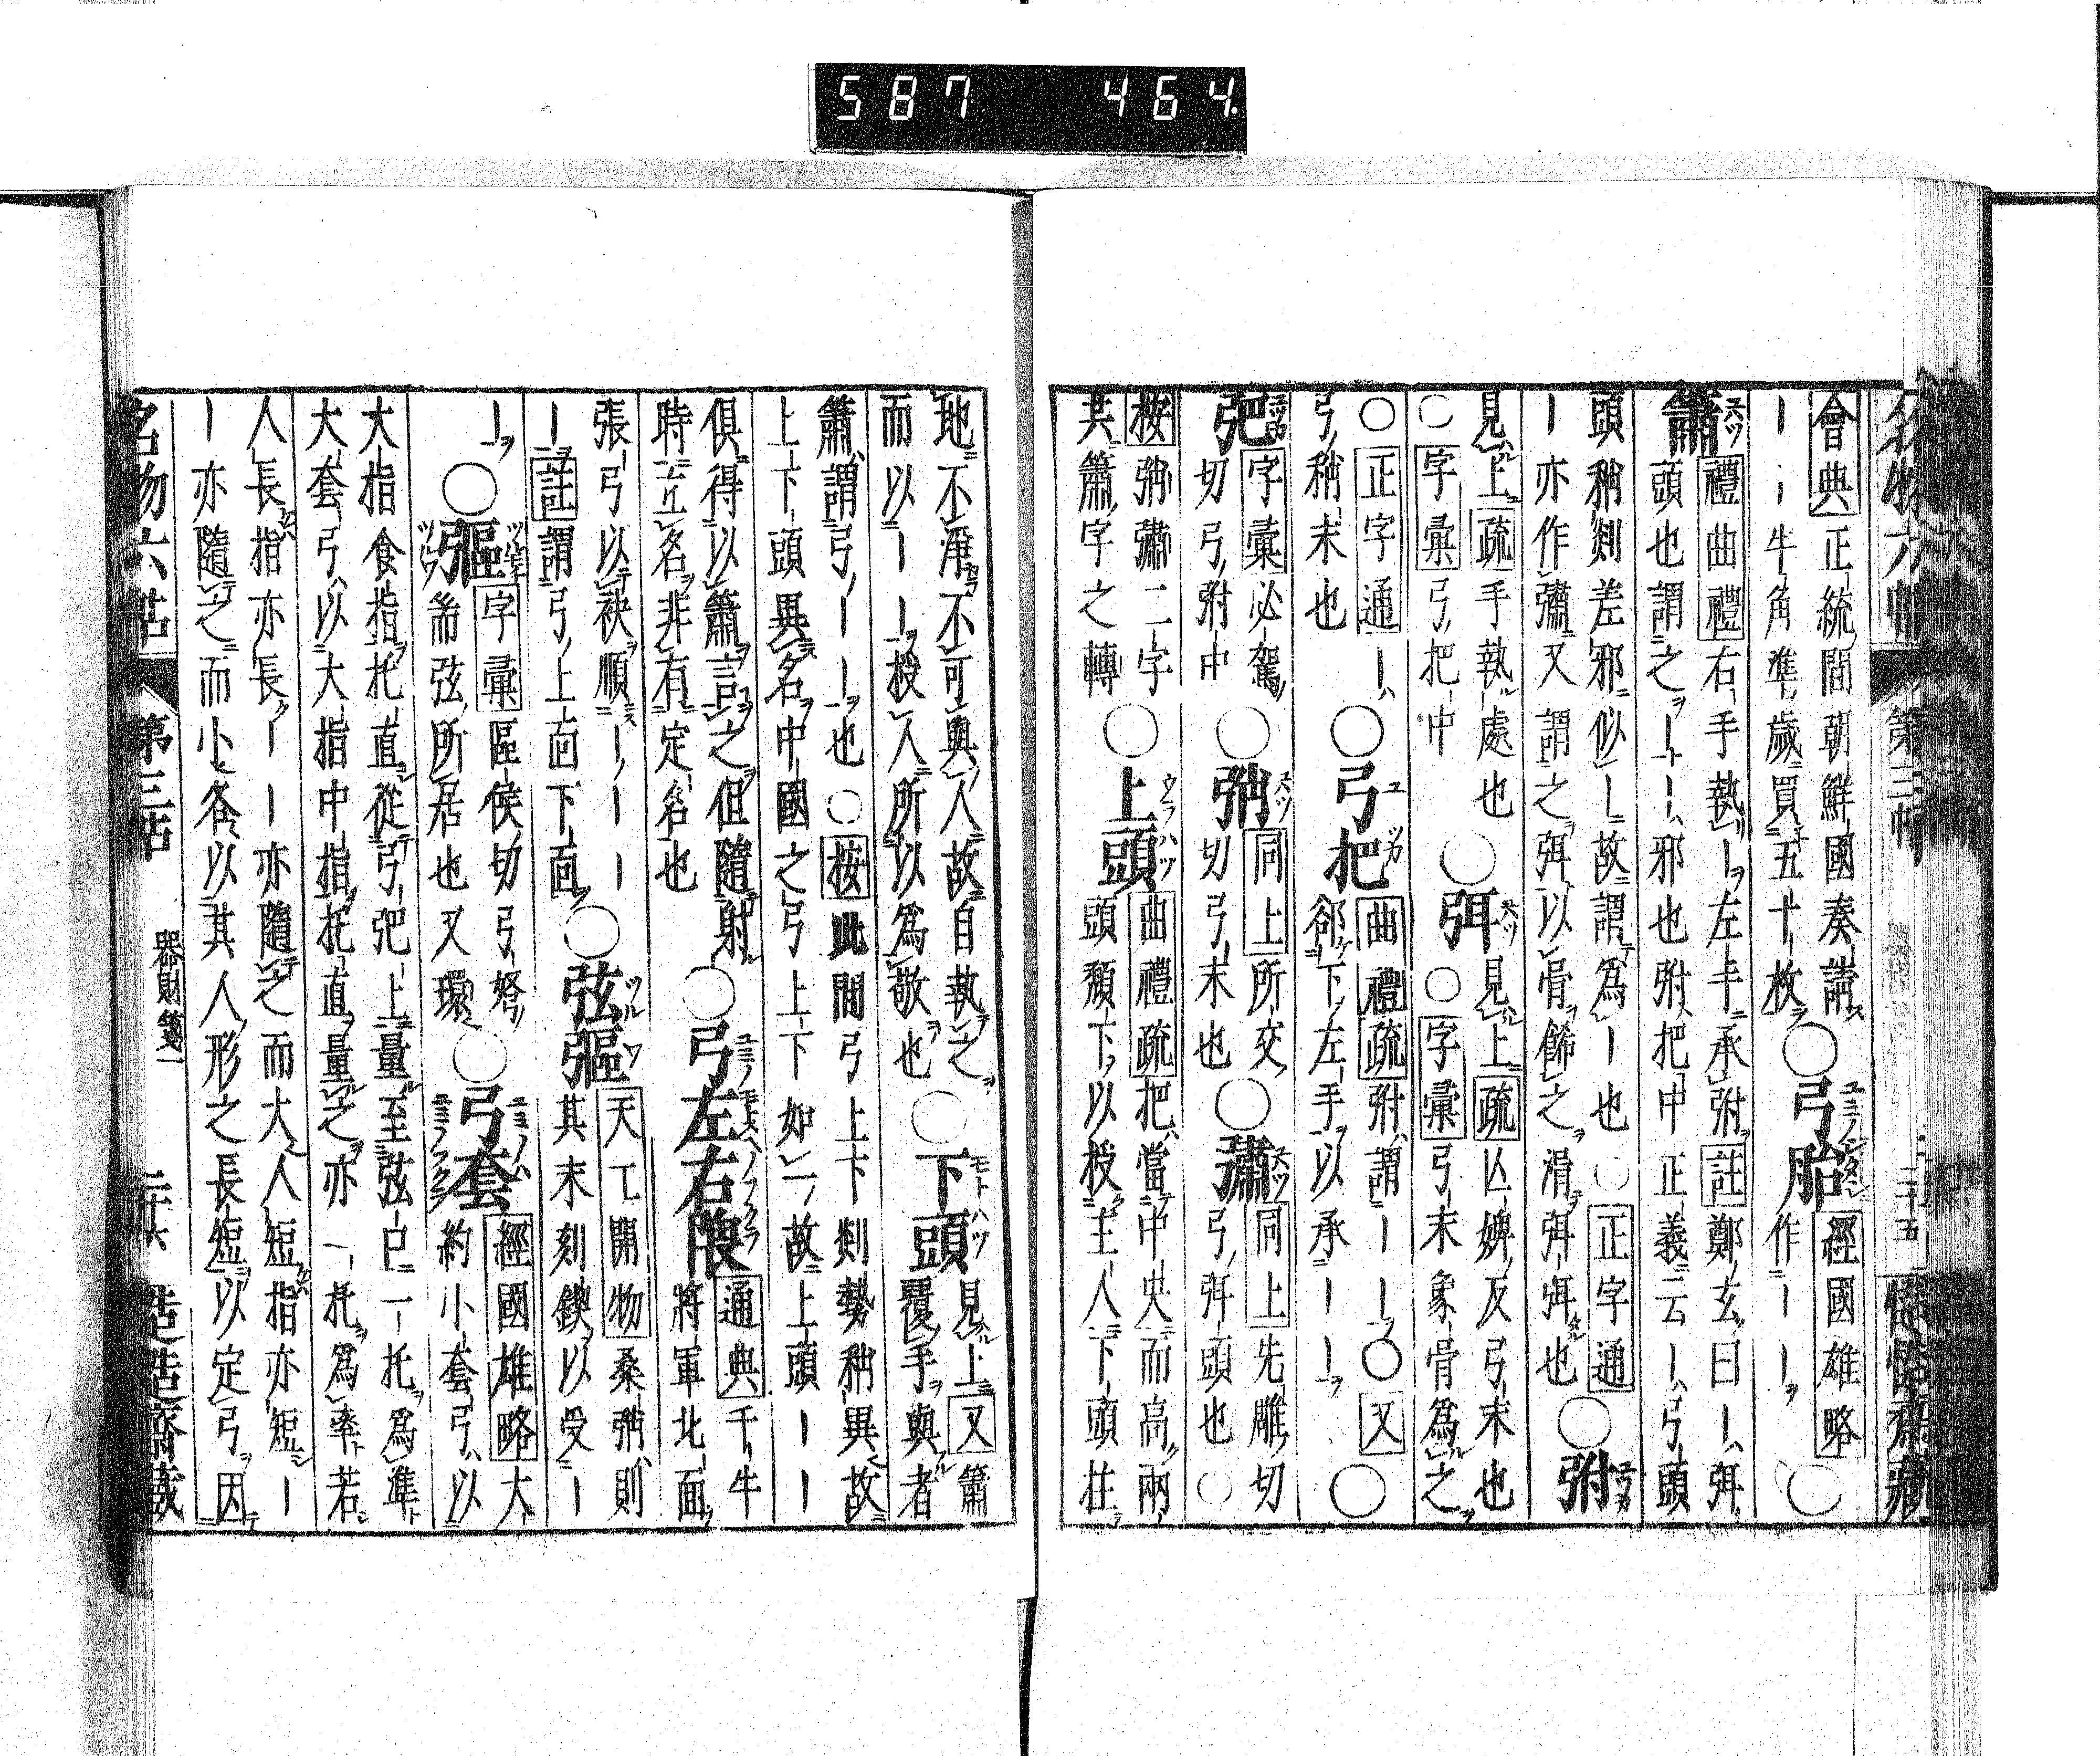 名物六帖 第三帖 二十五 慥慥齋藏
會典正統間朝鮮國奏請ーー牛角準歲買五十枚○弓胎經國雄略作ーー○
簫禮曲禮右手執ー左手承弣註鄭玄曰ー弭頭也謂之ーー邪也弣把中正義云ー弓頭
頭稍剡差邪似ー故謂為ー也○正字通ー亦作彇又謂之弭以骨飾之滑弭弭也○弣
見上疏手執處也○字彙弓把中○弭見上疏亾婢反弓末也○字彙弓末象骨為之
○正字通ー弓稍末也○弓把曲禮疏弣謂ーー○又郤下左手以承ーー○
弝字彙必駕切弓弣中○弰同上所交切弓末也○彇同上先雕切弓弭頭也○
按弰彇二字共簫字之轉○上頭曲禮疏把當中央而高兩頭頹下以授主人下頭拄
地不淨不可與人故自執之而以ーー授人所以為敬也○下頭見上又簫覆手與者
簫謂弓ーー也○按此間弓上下剡勢稍異故上下頭異名中國之弓上下如一故上頭ーー
俱得以簫言之但隨射時立名非有定名也○弓左右隈通典千牛將軍北面
張弓以袂順ーーー註謂弓上面下面○弦彄天工開物桑弰則其末刻鍥以受ー
ー○彄字彙區侯切弓弩耑弦所居也又環○弓套經國雄略大約小套弓以
大指食指托直從弓弝上量至弦巳一托為準大套弓以大指中指托直量之亦一托為率若
人長指亦長ーー亦隨之而大人短指亦短ーー亦隨之而小各以其人形之長短以定弓因
名物六帖 第三帖 器財箋二 二十六 慥慥齋藏
587 464.